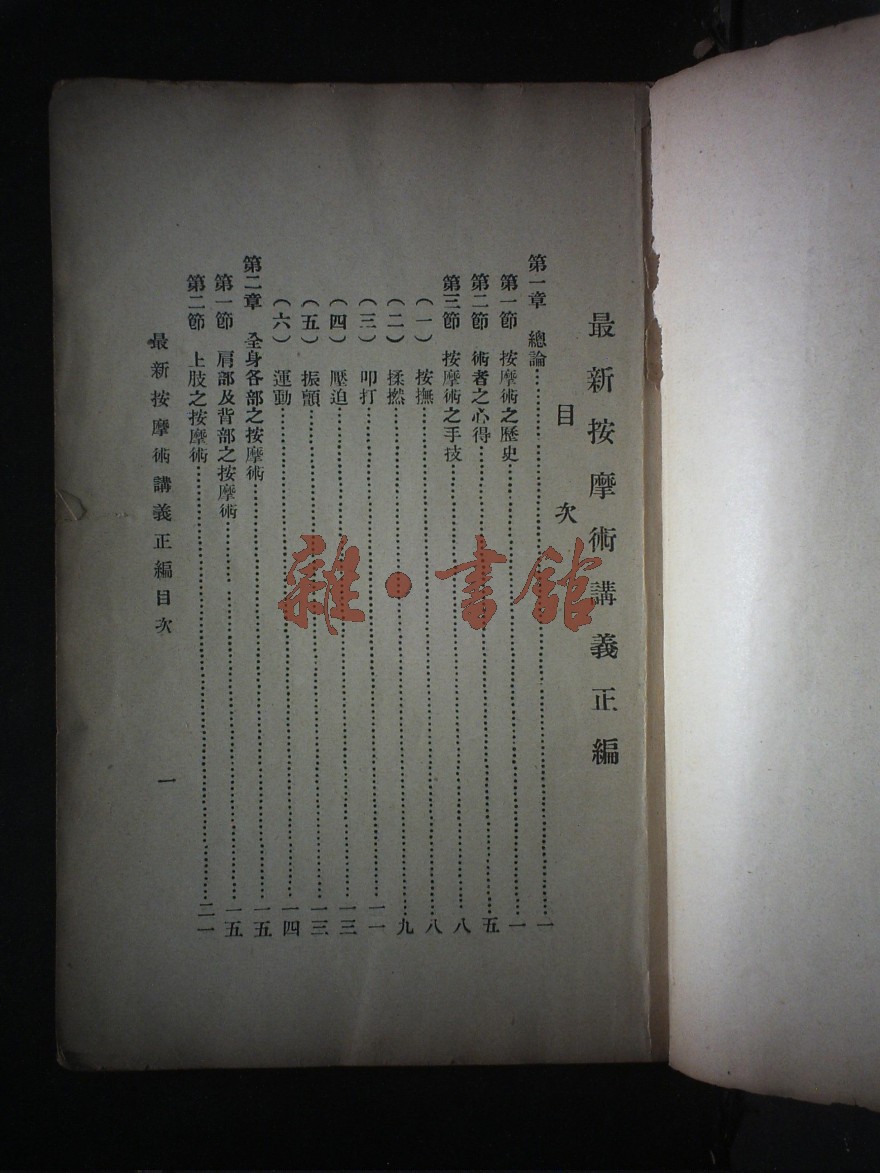 最新按摩術講義正編
目次
第一章 總論……一
第一節 按摩術之歷史……一
第二節 術者之心得……五
第三節 按摩術之手技……八
(一) 按撫……八
(二) 揉撚……九
(三) 叩打……一一
(四) 壓迫……一三
(五) 振顫……一三
(六) 運動……一四
第二章 全身各部之按摩術……一五
第一節 肩部及背部之按摩術……一五
第二節 上肢之按摩術……二一
最新按摩術講義正編目次
一
雜·書館